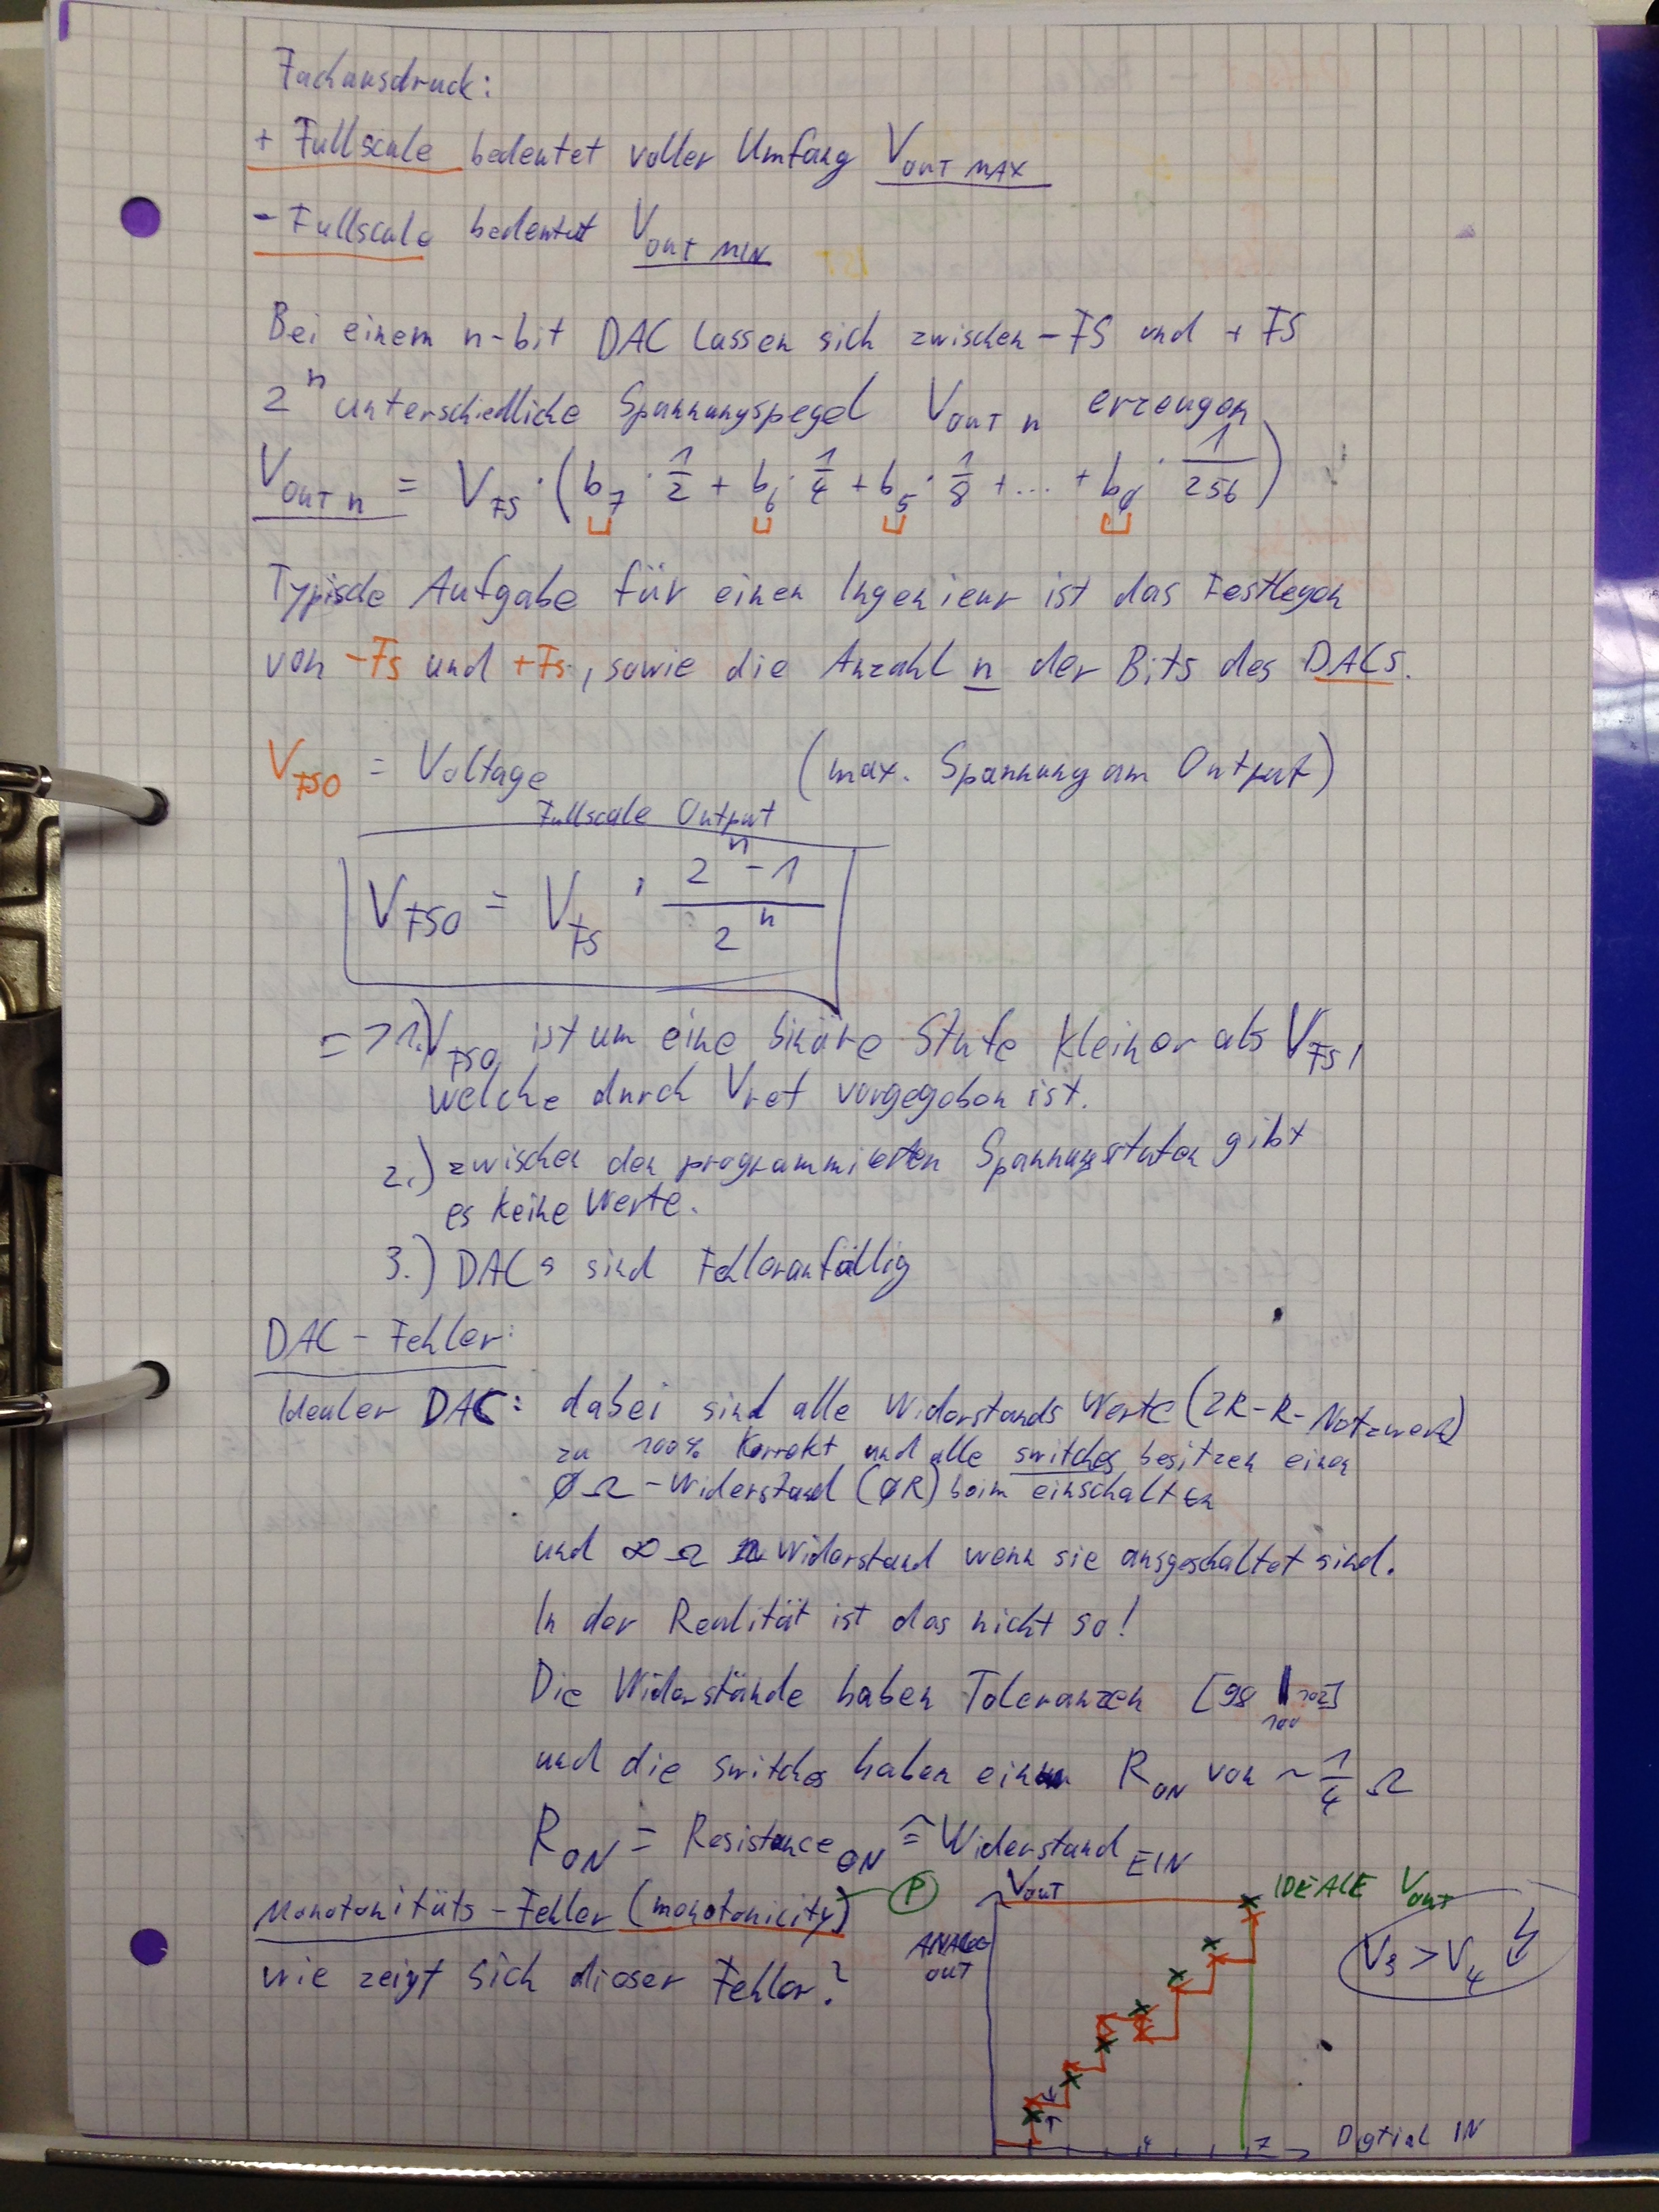 Fachausdruck:
+ Fullscale bedeutet voller Umfang V OUT MAX
- Fullscale bedeutet V OUT MIN
Bei einem n-bit DAC lassen sich zwischen -FS und +FS
2^n unterschiedliche Spannungspegel V OUT n erzeugen
V OUT n = V FS · (b7 · 1/2 + b6 · 1/4 + b5 · 1/8 + ... + b0 · 1/256)
Typische Aufgabe für einen Ingenieur ist das Festlegen
von -Fs und +Fs, sowie die Anzahl n der Bits des DACs.
V FSO = Voltage Fullscale Output (max. Spannung am Output)
V FSO = V FS · (2^n - 1) / 2^n
=> 1.) V FSO ist um eine binäre Stufe kleiner als V FS,
welche durch Vref vorgegeben ist.
2.) zwischen den programmierten Spannungsstufen gibt
es keine Werte.
3.) DACs sind Fehleranfällig
DAC - Fehler:
Idealer DAC: dabei sind alle Widerstands Werte (2R-R-Netzwerk)
zu 100% Korrekt und alle switches besitzen einen
ØΩ - Widerstand (ØR) beim einschalten
und ∞Ω Widerstand wenn sie ausgeschaltet sind.
In der Realität ist das nicht so!
Die Widerstände haben Toleranzen [98 | 102]
100
und die switches haben einen R ON von ~ 1/4 Ω
R ON = Resistance ON ≙ Widerstand EIN
Monotonitäts - Fehler (monotonicity) P
wie zeigt sich dieser Fehler?
Vout
ANALOG
OUT
IDEALE Vout
V3 > V4
4
7
Digtial IN